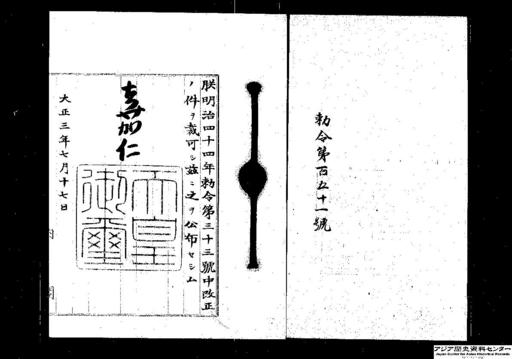 勅令第百五十一號
朕明治四十四年勅令第三十三號中改正
ノ件ヲ裁可シ茲ニ之ヲ公布セシム
嘉仁
天皇
御璽
大正三年七月十七日
内閣
アジア歴史資料センター
Japan Center for Asian Historical Records